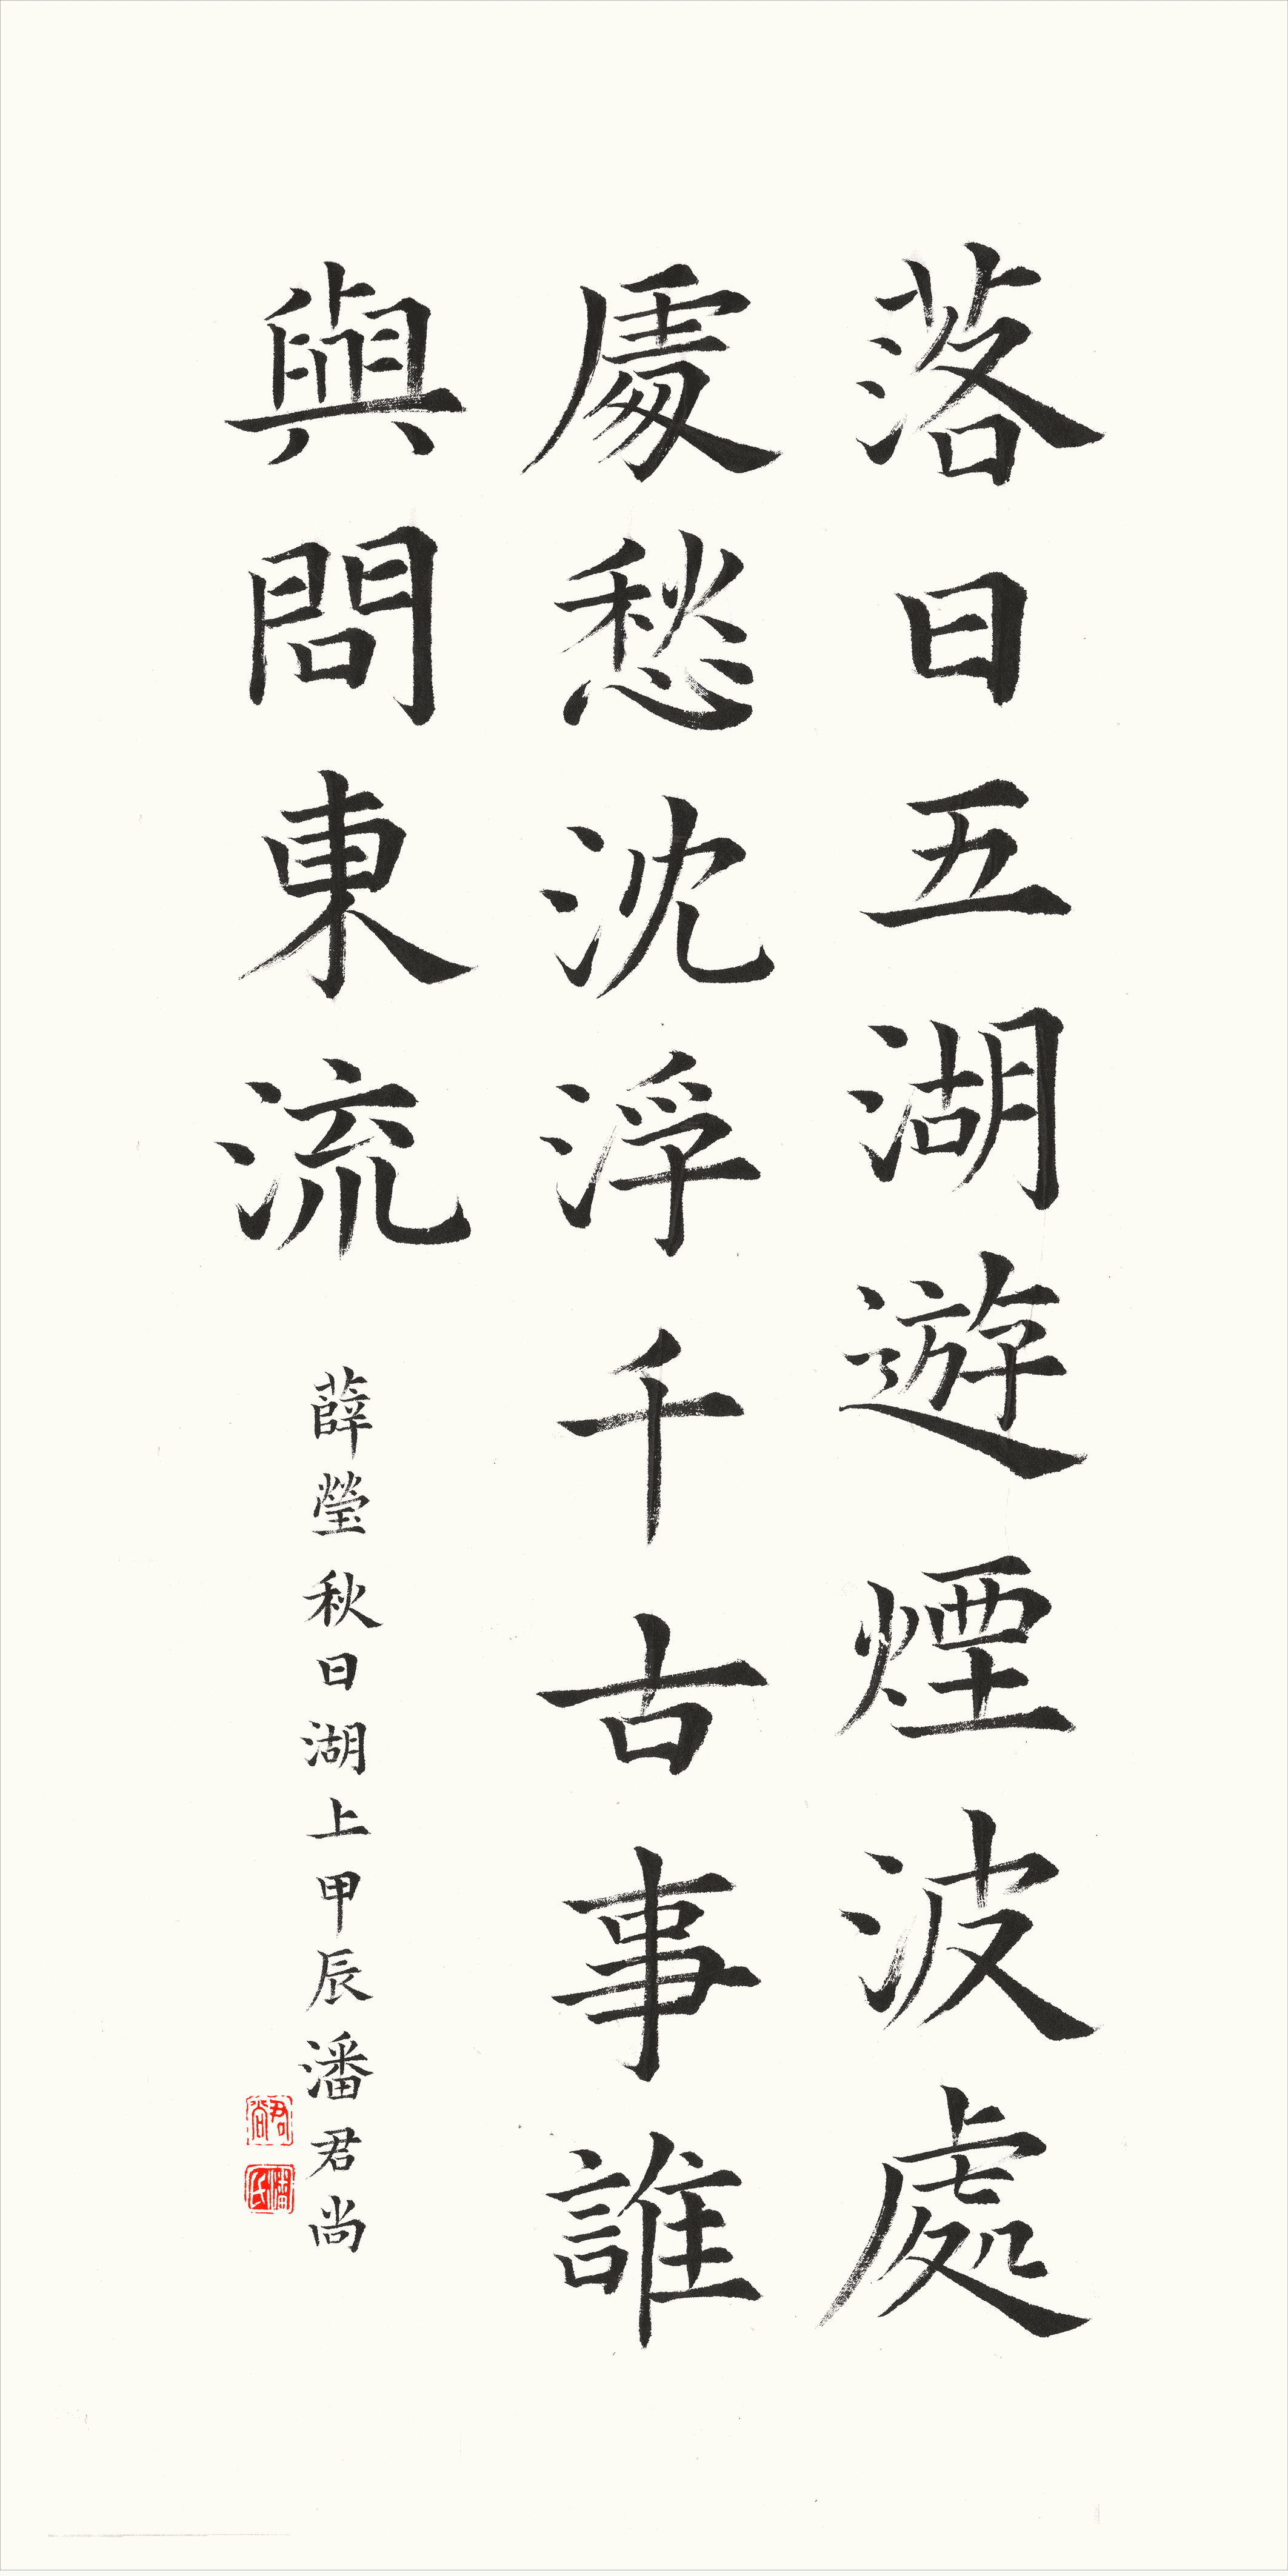 落日五湖遊煙波處
處愁沈浮千古事誰
與問東流
薛瑩秋日湖上甲辰潘君尚
君尚
潘氏